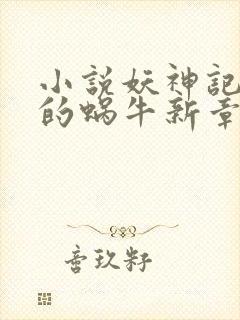 小說妖神記
的蝸牛新章
音玖籽